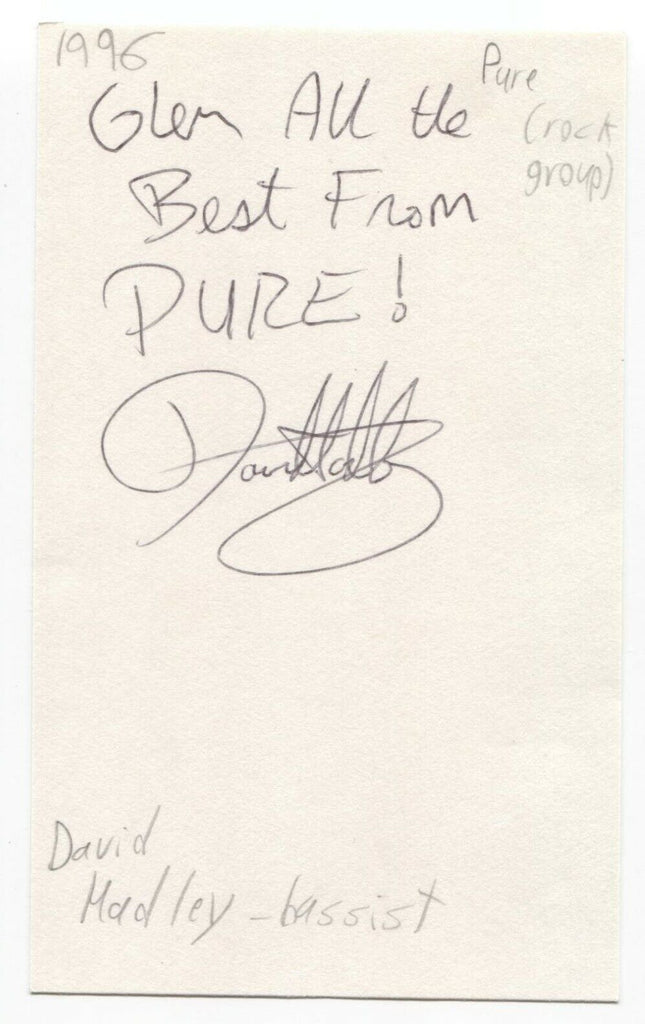 1996
Pure
(rock
group)
Glen All the
Best From
PURE!
David Hadley
David
Hadley - bassist